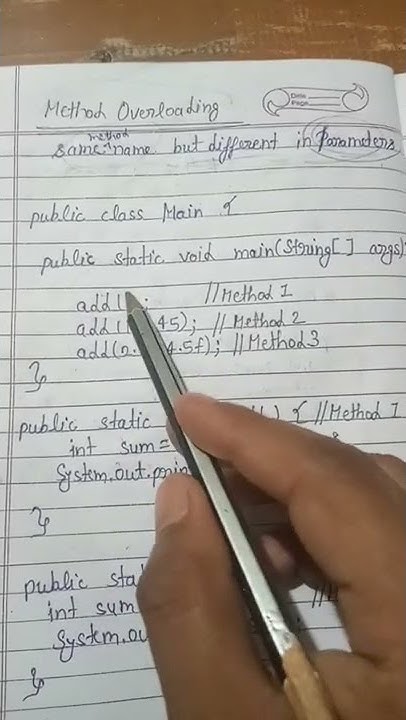 Method Overloading
Date
Page
method
same name but different in Parameters
public class Main {
public static void main(String[] args)
add( ; //Method 1
add( 45); // Method 2
add(2. 4.5f); // Method 3
}
public static ) { //Method 1
int sum=
System.out.prin
}
public sta
int sum
System.ou
}